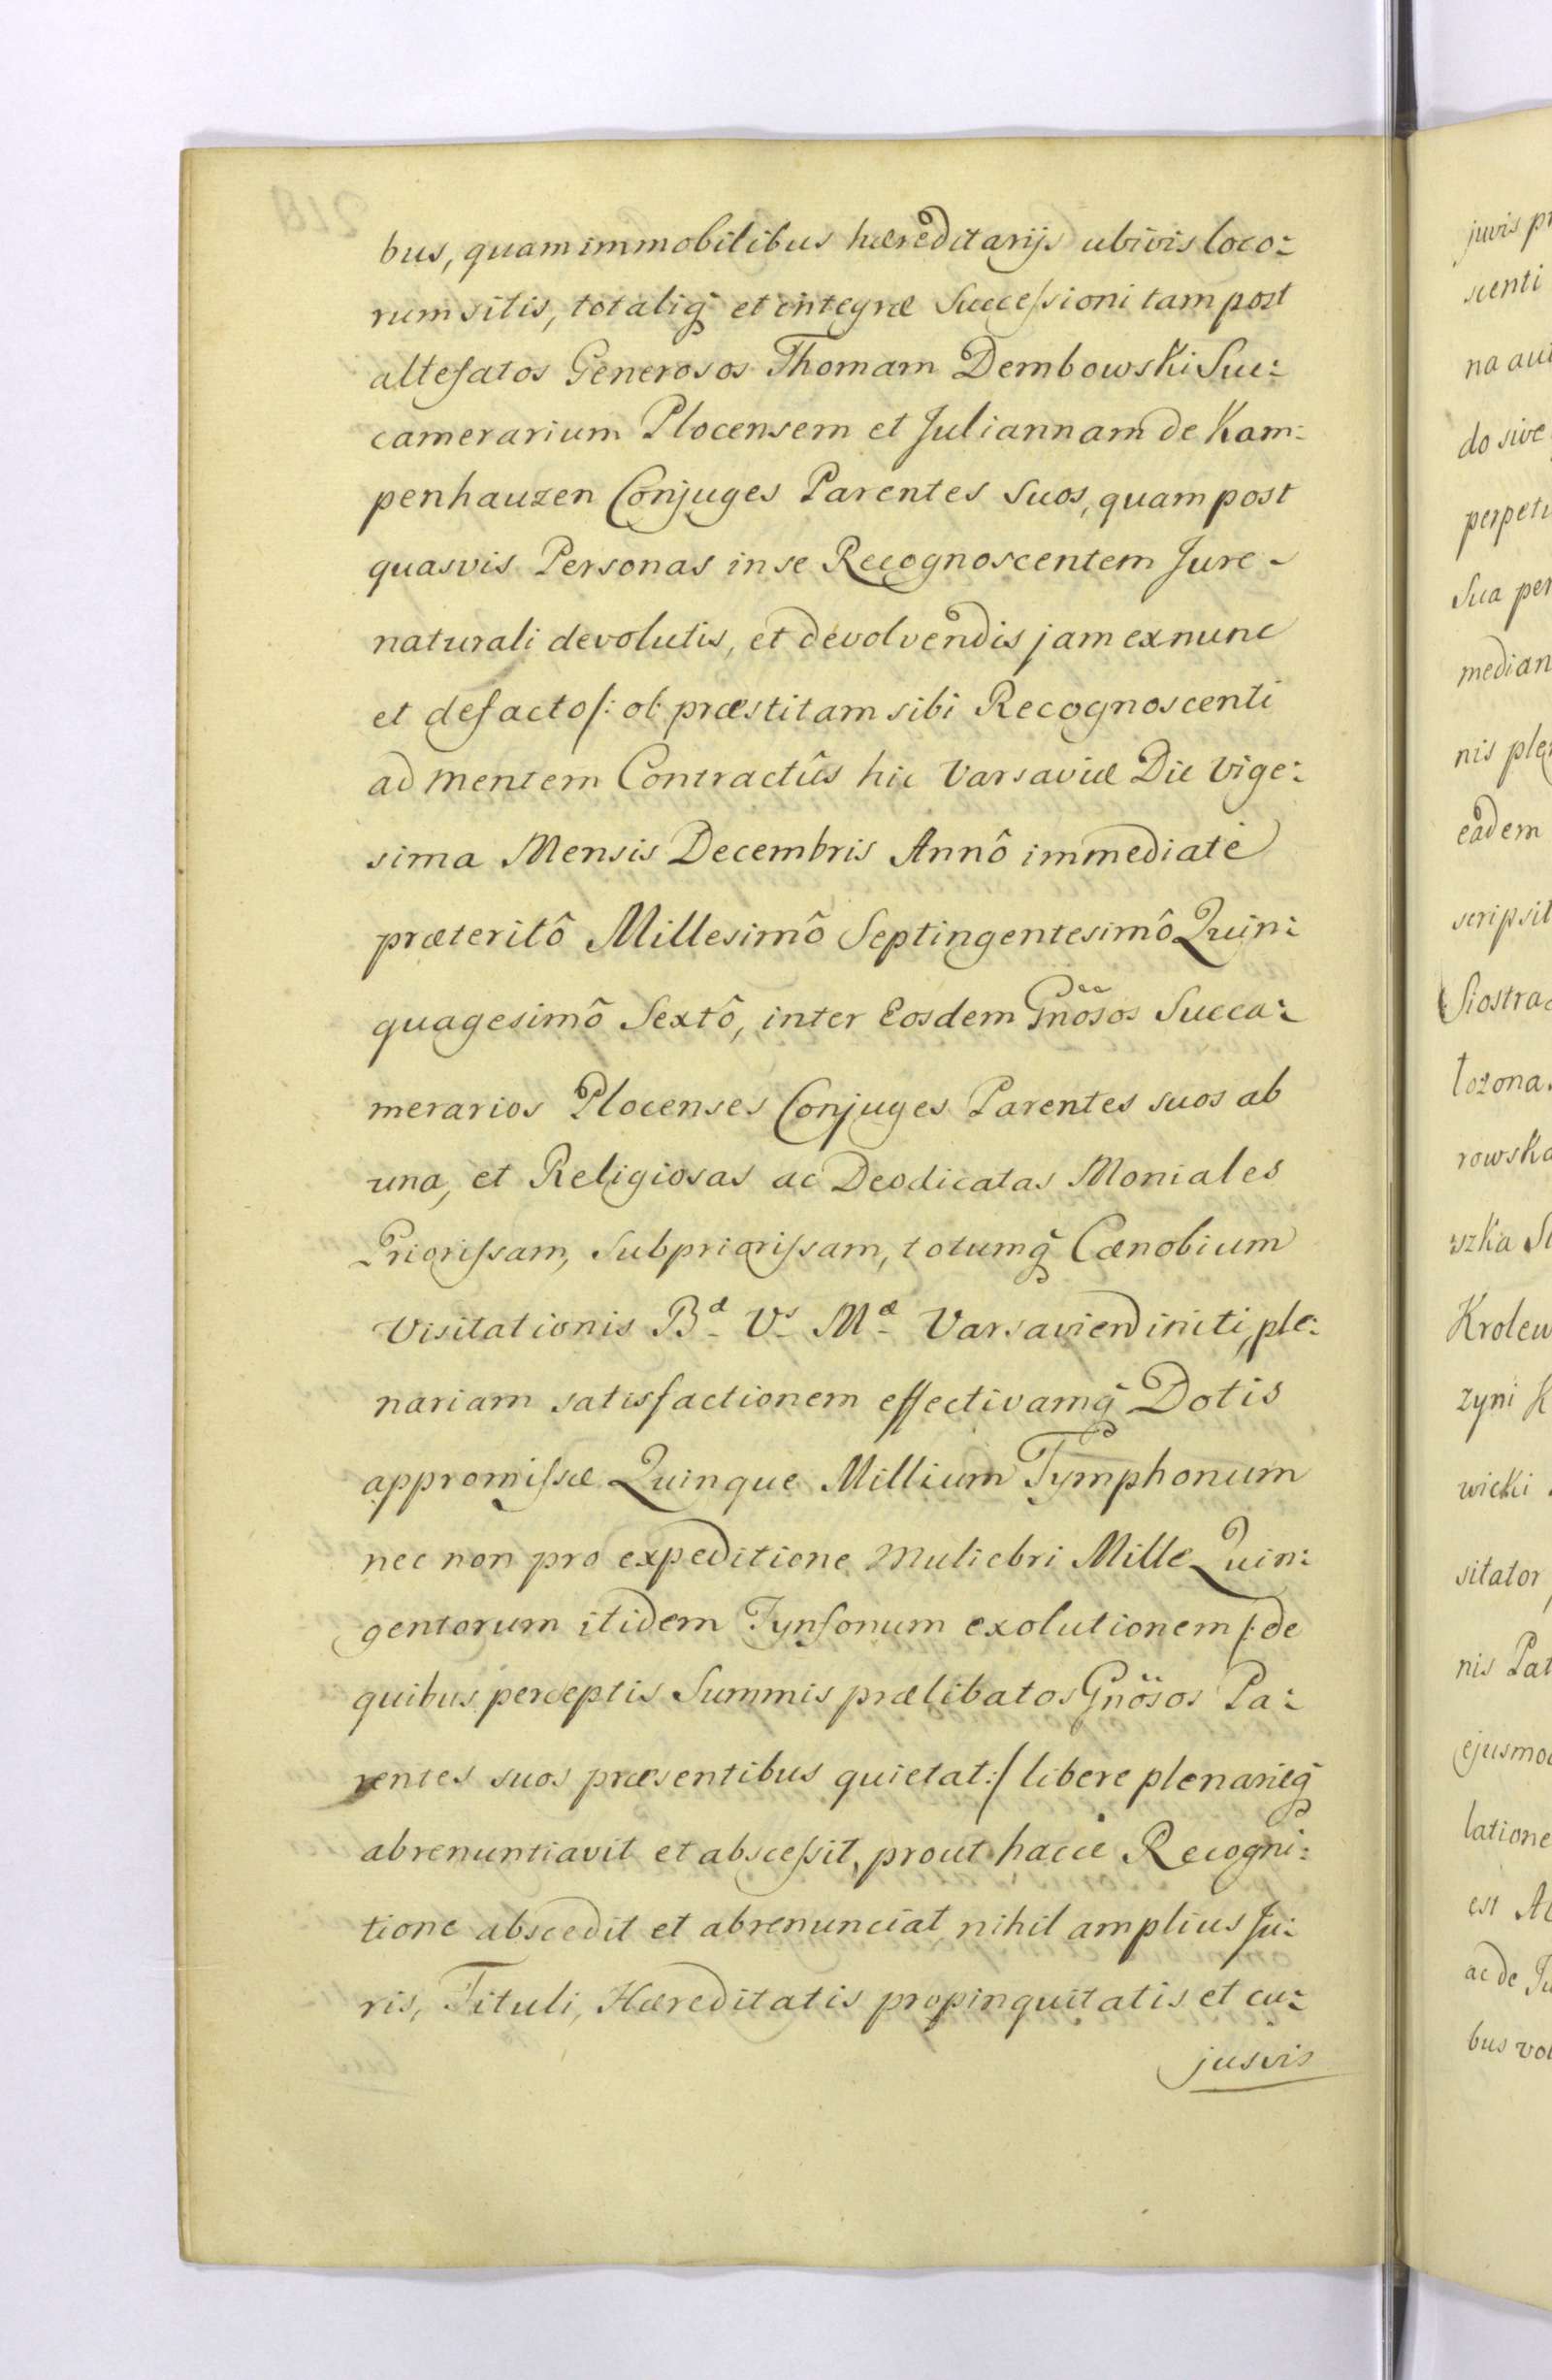 bus, quam immobilibus hæreditarijs ubivis loco:
rum sitis, totaliq́ et integræ Successioni tam post
altefatos Generosos Thomam Dembowski Suc:
camerarium Plocensem et Juliannam de Kam:
penhauzen Conjuges Parentes suos, quam post
quasvis Personas in se Recognoscentem Jure -
naturali devolutis, et devolvendis jam exnunc
et defacto /: ob præstitam sibi Recognoscenti
ad mentem Contractûs hic Varsaviæ Die Vige:
sima Mensis Decembris Annô immediatè
præteritô Millesimô Septingentesimô Quin:
quagesimô Sextô, inter Eosdem Gnosos Succa:
merarios Plocenses Conjuges Parentes suos ab
una, et Religiosas ac Deodicatas Moniales
Priorissam, Subpriorissam, totumq́ Cænobium
Visitationis Bæ Vs Mæ Varsavien initi, ple:
nariam satisfactionem effectivamq́ Dotis
appromissæ Quinque Millium Tymphonum
nec non pro expeditione Muliebri Mille Quin:
gentorum itidem Tynfonum exolutionem /: de
quibus perceptis Summis prælibatos Gnosos Pa:
rentes suos præsentibus quietat :/ libere plenarieq́
abrenuntiavit et abscessit, prout hacce Recogni:
tione abscedit et abrenunciat nihil amplius Ju:
ris, Tituli, Hæreditatis propinquitatis et cu:
jusvis
juris
scenti
do sive
Sua
eadem
scripsit
wicki
sitator
nis
bus